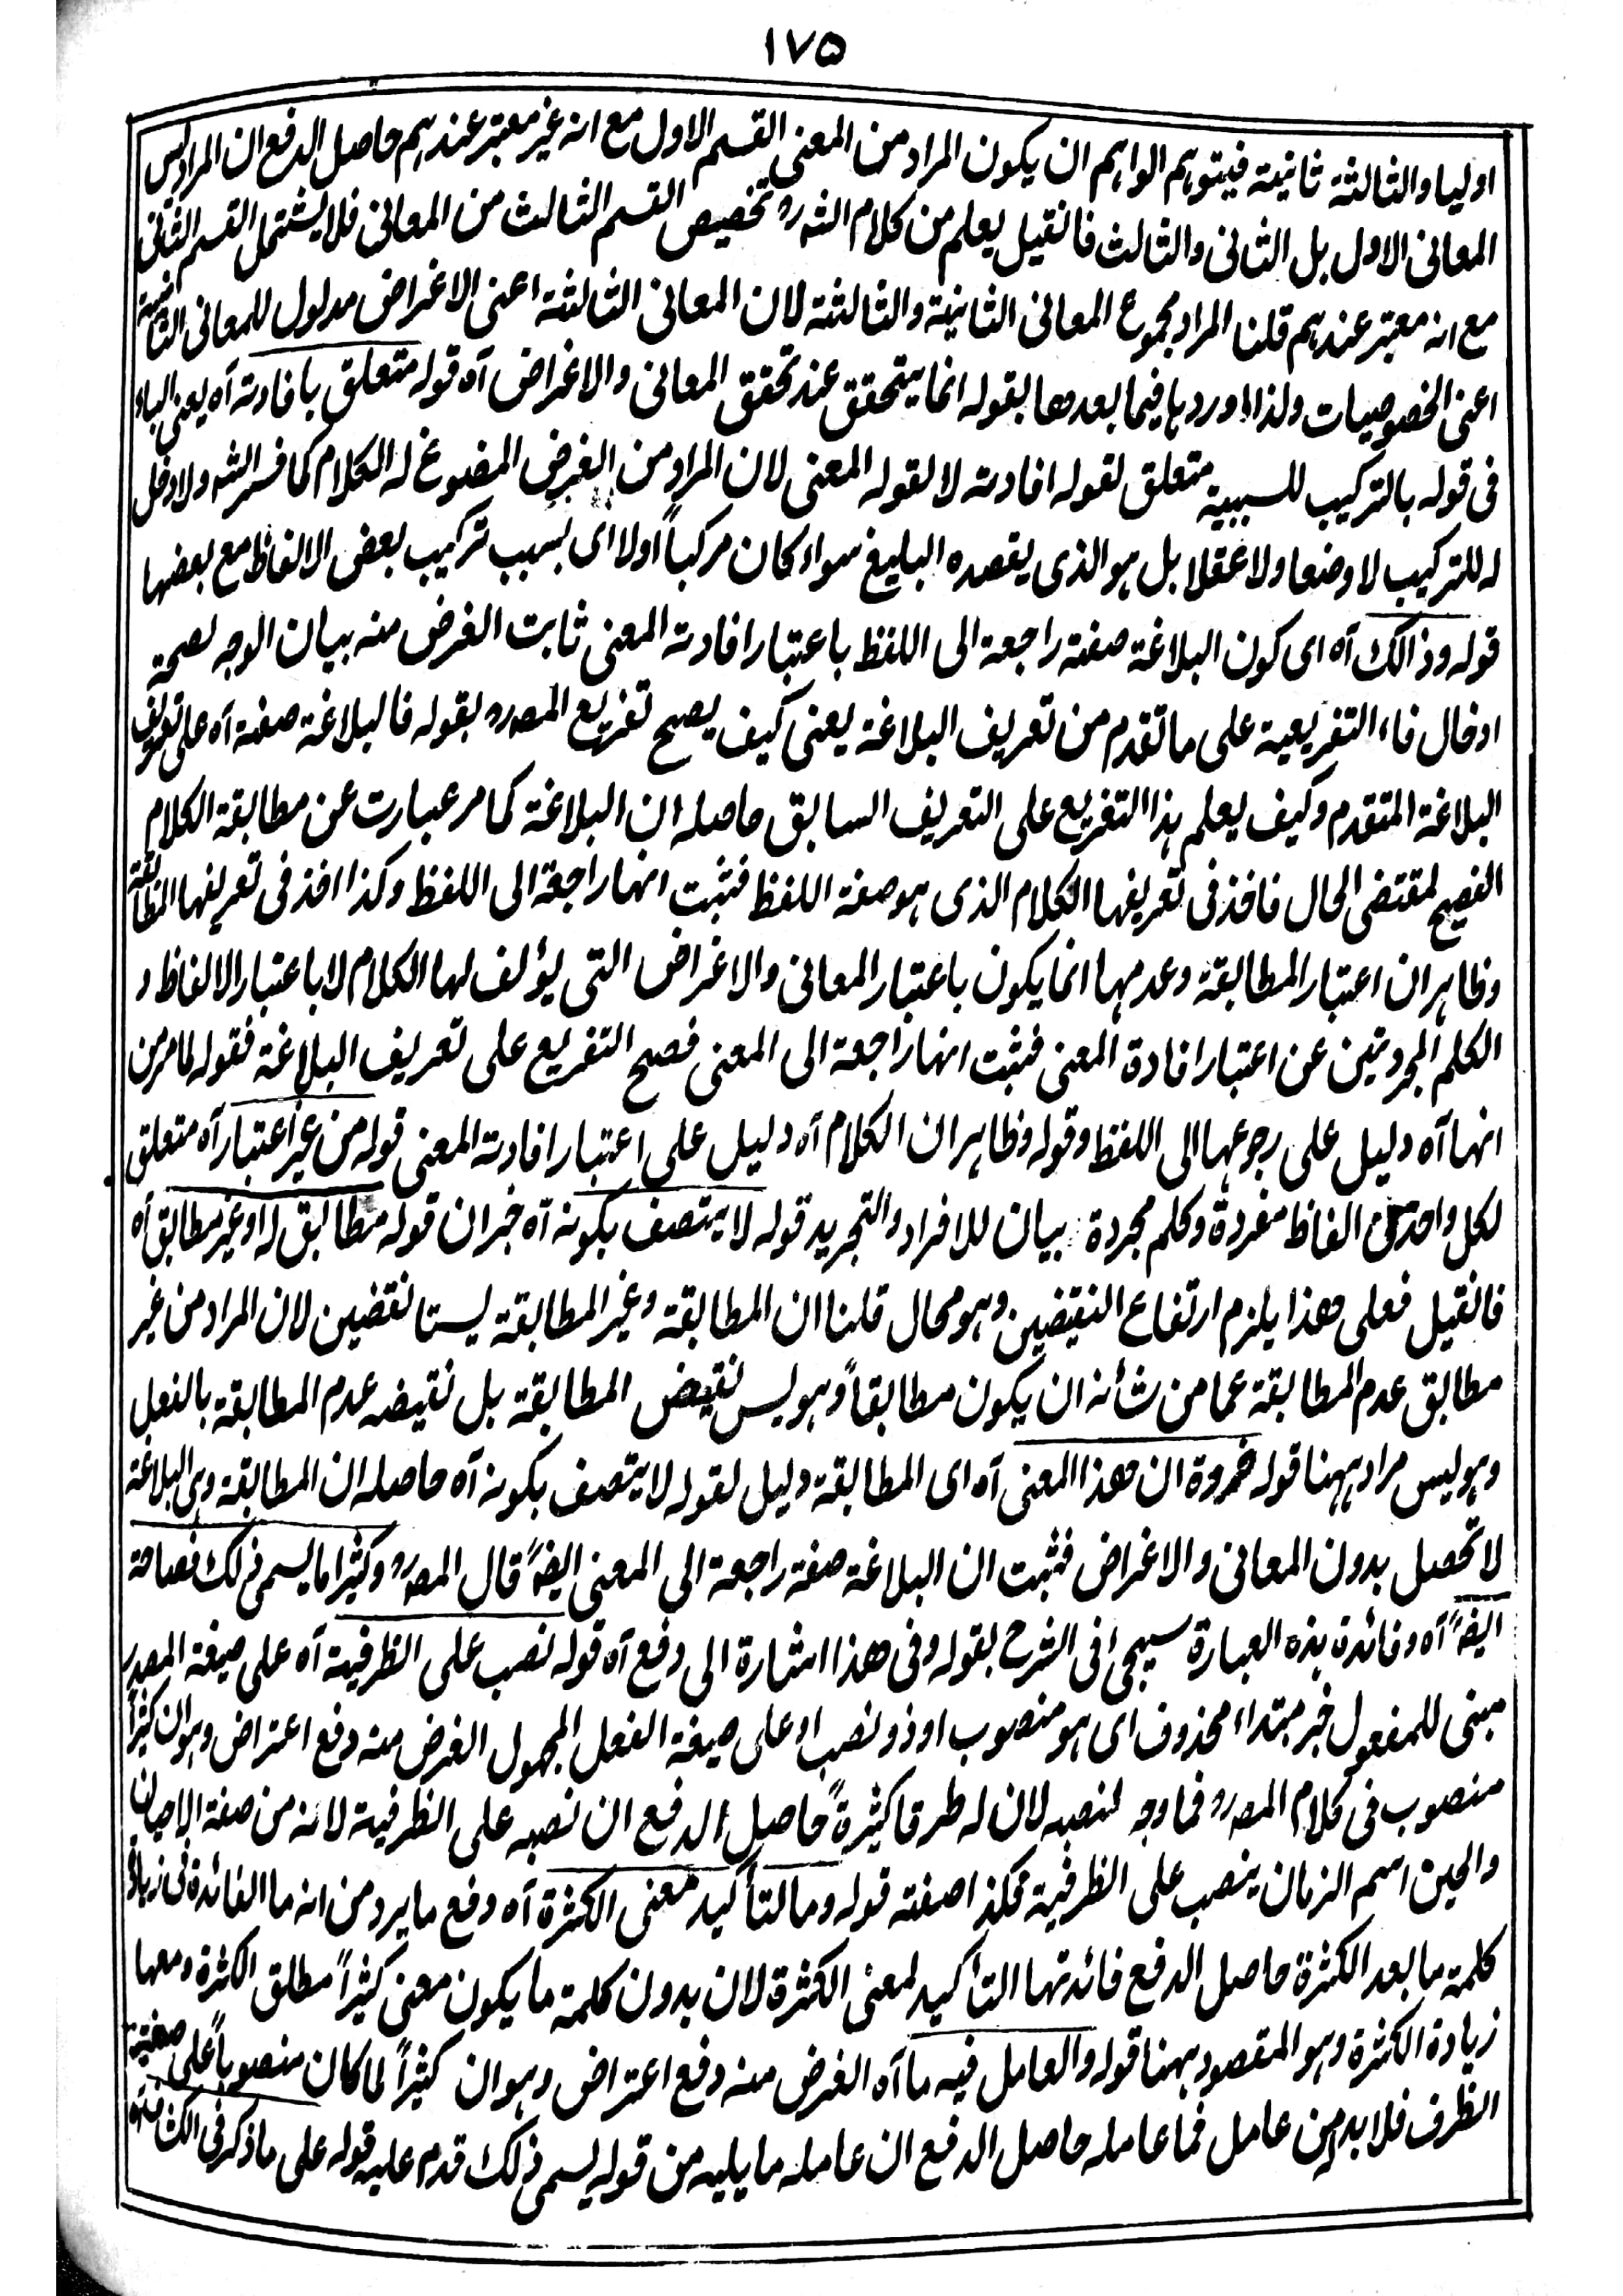 ١٧٥
اوليا والثالثة ثانية فيتوهم الواهم ان يكون المراد من المعنى القسم الاول مع انه غير معتبر عندهم حاصل الدفع ان المراد ليس
المعانى الاول بل الثانى والثالث فانقيل يعلم من كلام الشه ره تخصيص القسم الثالث من المعانى فلا يشتمل القسم الثانى
مع انه معتبر عندهم قلنا المراد مجموع المعانى الثانية والثالثة لان المعانى الثالثة اعنى الاغراض مدلول للمعانى الثانية
اعنى الخصوصيات ولذا اوردها فيما بعدها بقوله انما يتحقق عند تحقق المعانى والاغراض آه قوله متعلق بافادته آه يعنى الباء
فى قوله بالتركيب للسببية متعلق لقوله افادته لا لقوله المعنى لان المراد من الغرض المصوغ له الكلام كما فسر الشه ولا دخل
له للتركيب لا وضعا ولا عقلا بل هو الذى يقصده البليغ سواء كان مركباً اولا اى بسبب تركيب بعض الالفاظ مع بعضها
قوله وذالك آه اى كون البلاغة صفة راجعة الى اللفظ باعتبار افادته المعنى ثابت الغرض منه بيان الوجه لصحة
ادخال فاء التفريعية على ما تقدم من تعريف البلاغة يعنى كيف يصح تفريع المصه ره بقوله فالبلاغة صفة آه على تعريف
البلاغة المتقدم وكيف يعلم هذا التفريع على التعريف السابق حاصله ان البلاغة كما مر عبارت عن مطابقة الكلام
الفصيح لمقتضى الحال فاخذ فى تعريفها الكلام الذى هو صفة اللفظ فثبت انها راجعة الى اللفظ وكذا اخذ فى تعريفها المطابقة
وظاهر ان اعتبار المطابقة وعدمها انما يكون باعتبار المعانى والاغراض التى يؤلف لها الكلام لا باعتبار الالفاظ و
الكلم المجردتين عن اعتبار افادة المعنى فثبت انها راجعة الى المعنى فصح التفريع على تعريف البلاغة فقوله لما مر من
انها آه دليل على رجوعها الى اللفظ وقوله وظاهر ان الكلام آه دليل على اعتبار افادته المعنى قوله من غير اعتبار آه متعلق
لكل واحد من الفاظ مفردة وكلم مجردة بيان للافراد والتجريد قوله لا يتصف بكونه آه خبر ان قوله مطابق له او غير مطابق آه
فانقيل فعلى هذا يلزم ارتفاع النقيضين وهو محال قلنا ان المطابقة وغير المطابقة ليستا نقضين لان المراد من غير
مطابق عدم المطابقة عما من شأنه ان يكون مطابقاً وهو ليس نقيض المطابقة بل نقيضه عدم المطابقة بالفعل
وهو ليس مراد ههنا قوله ضروة ان هذا المعنى آه اى المطابقة دليل لقوله لا يتصف بكونه آه حاصله ان المطابقة وهى البلاغة
لا تحصل بدون المعانى والاغراض فثبت ان البلاغة صفة راجعة الى المعنى ايضاً قال المصه ره وكثيرا ما يسمى ذلك فصاحة
ايضاً آه وفائدة هذه العبارة سيجئ فى الشرح بقوله وفى هذا اشارة الى دفع آه قوله نصب على الظرفية آه على صيغة المصدر
مبنى للمفعول خبر مبتداء محذوف اى هو منصوب او ذو نصب او على صيغة الفعل المجهول الغرض منه دفع اعتراض وهو ان كثيراً
منصوب فى كلام المصه ره فما وجه لنصبه لان له طرقا كثيرةً حاصل الدفع ان نصبه على الظرفية لانه من صفة الاحيان
والحين اسم الزمان ينصب على الظرفية فكذا صفته قوله وما لتأكيد معنى الكثرة آه دفع ما يرد من انه ما الفائدة فى زيادة
كلمة ما بعد الكثرة حاصل الدفع فائدتها التأكيد لمعنى الكثرة لان بدون كلمة ما يكون معنى كثيراً مطلق الكثرة ومعها
زيادة الكثرة وهو المقصود ههنا قوله والعامل فيه ما آه الغرض منه دفع اعتراض وهو ان كثيراً لما كان منصوباً على صفة
الظرف فلا بد من عامل فما عامله حاصل الدفع ان عامله ما يليه من قوله يسمى ذلك قدم عليه قوله على ما ذكر فى الكشاف